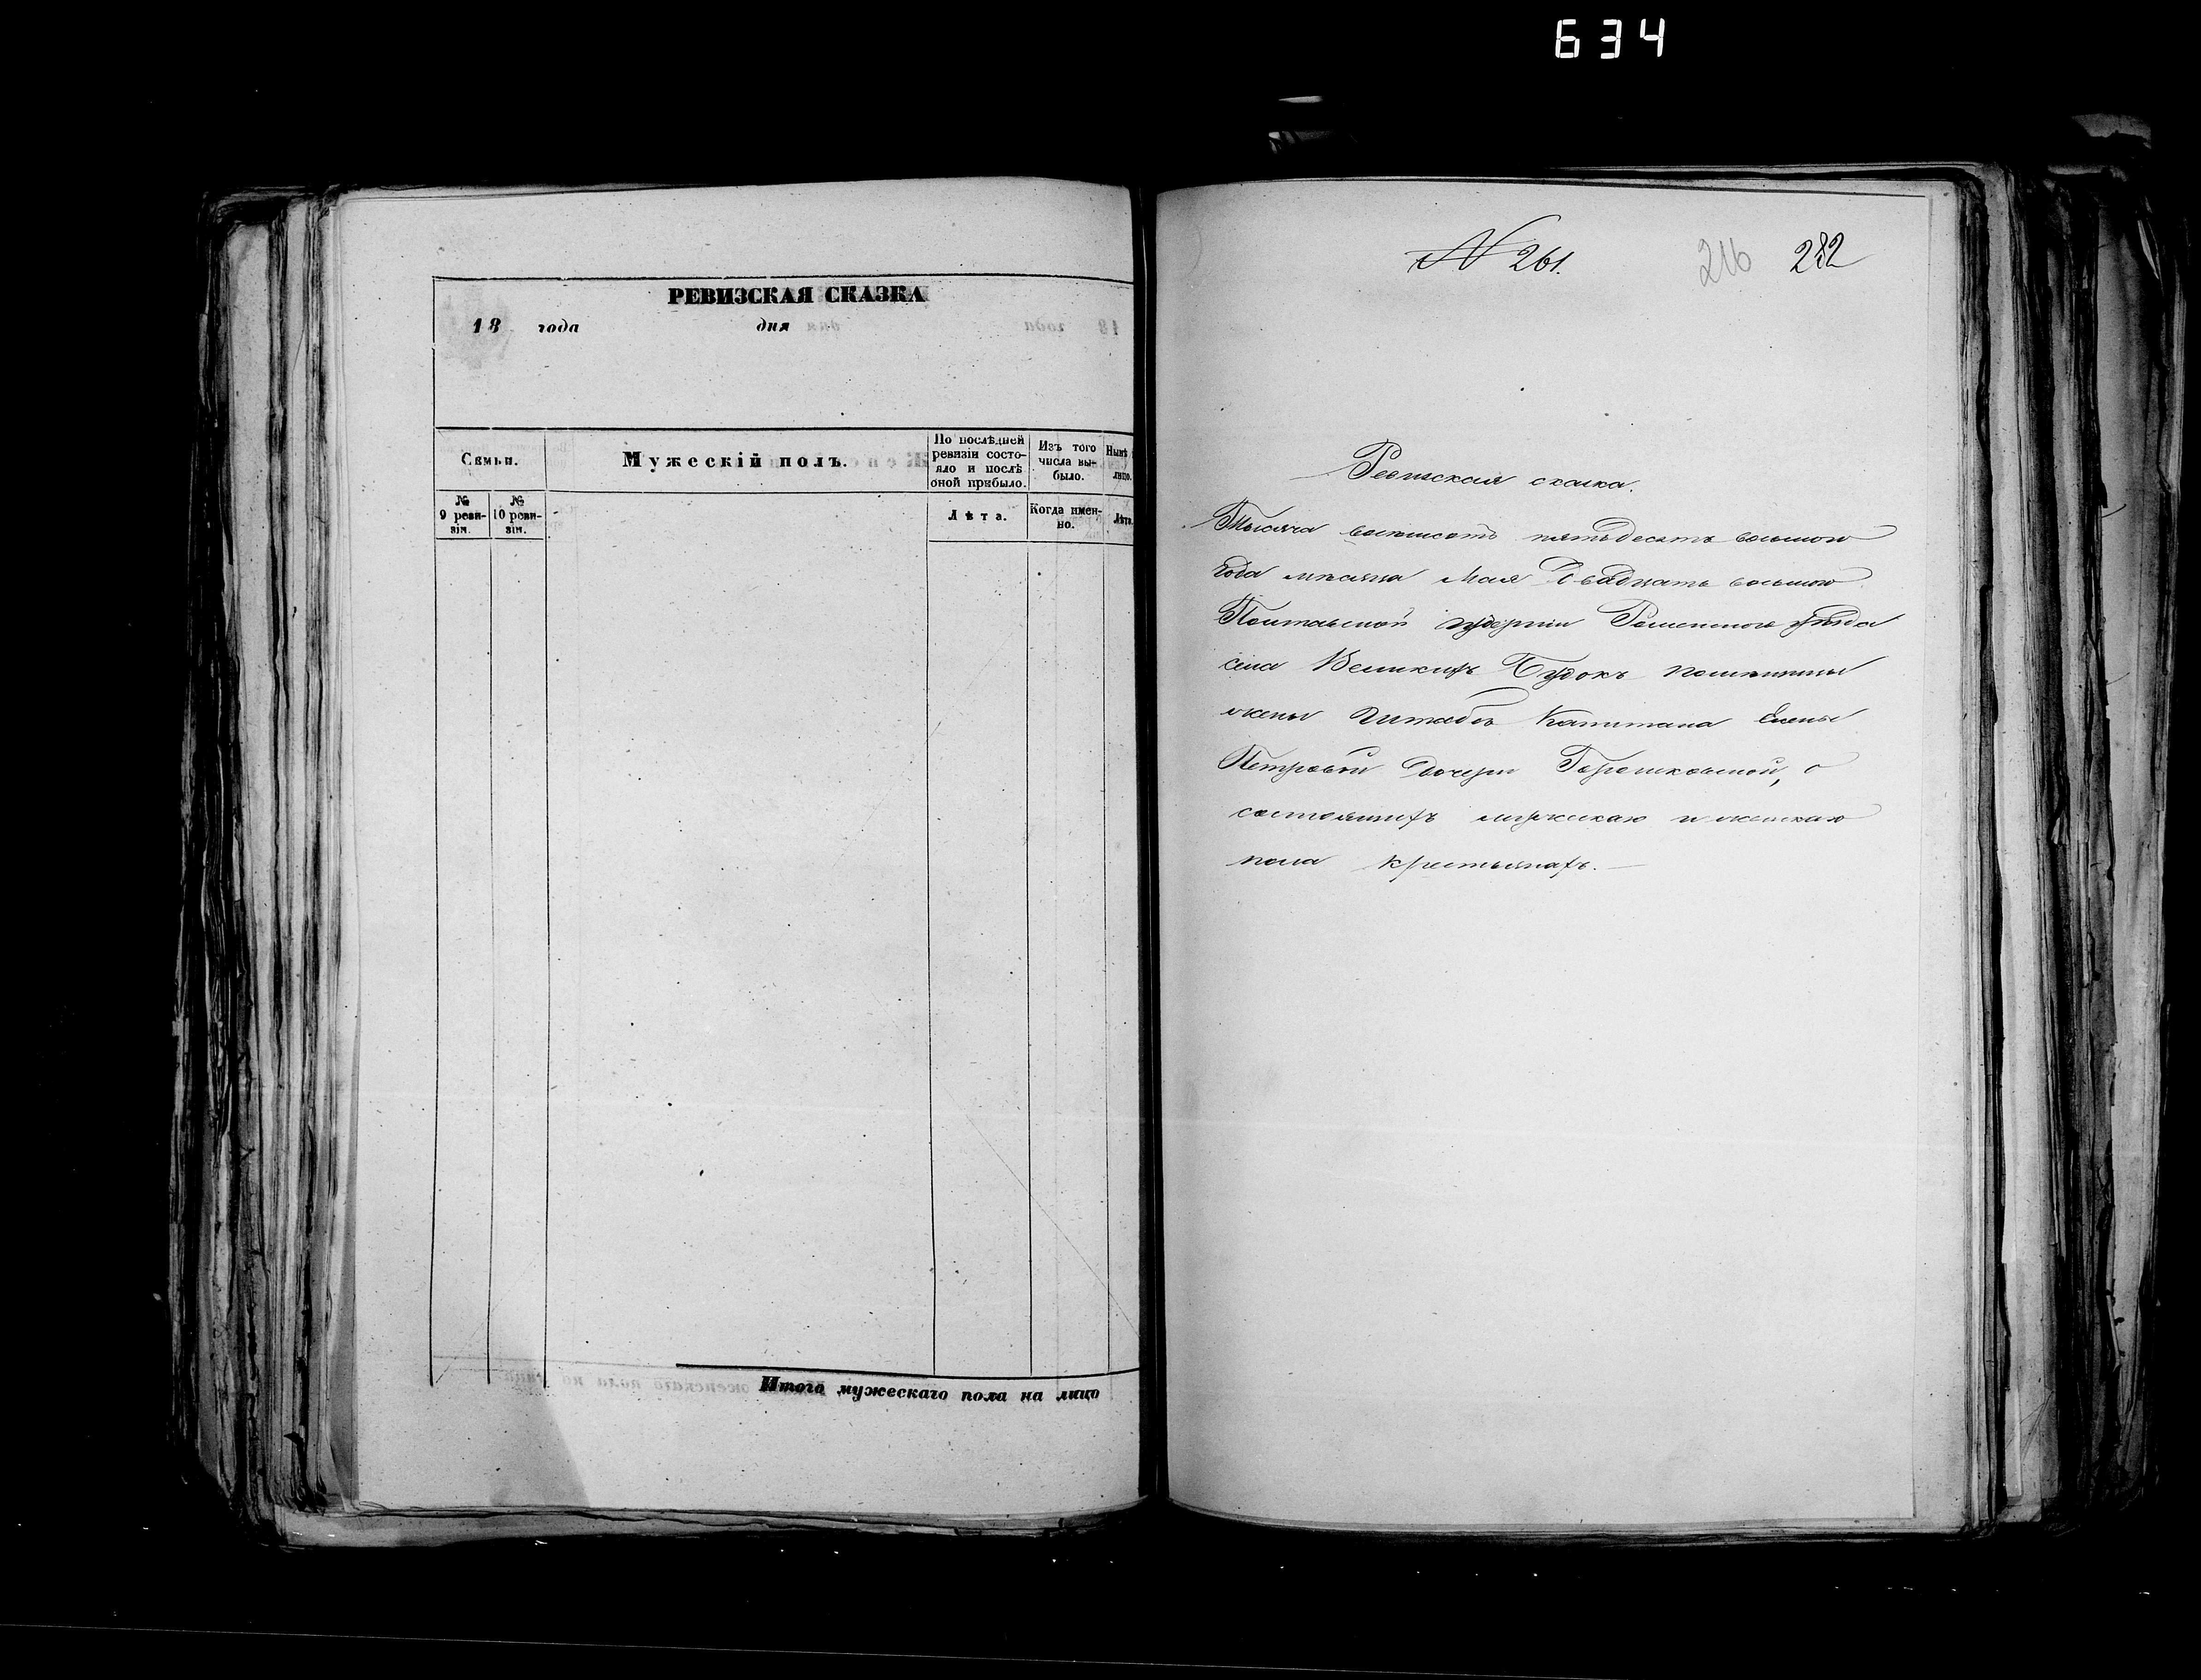 634
РЕВИЗСКАЯ СКАЗКА
18 года дня
Семьи.
Мужескій полъ.
По послѣдней ревизіи состо-
яло и послѣ
оной прибыло.
Изъ того
числа вы-
было.
Нынѣ
лицо.
№
9 реви-
зіи.
№
10 реви-
зіи.
Лѣта.
Когда имен-
но.
Лѣта.
Итого мужескаго пола на лицо
№ 261.
216 282
Ревизская сказка.
Тысяча восемьсотъ пятьдесятъ восьмого
года мѣсяца Мая Двадцать восьмого
Полтавской губерніи Роменского уѣзда
села Великихъ Будокъ помѣщицы
жены Штабсъ Капитана Елены
Петровой дочери о
состоящихъ мужескаго и женскаго
пола крестьянахъ.